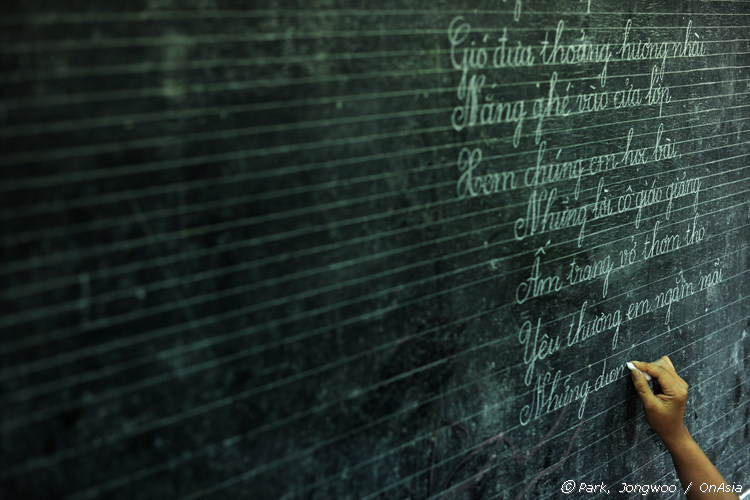 Gió đưa thoảng hương nhài
Nắng ghé vào cửa lớp
Xem chúng em học bài.
Những lời cô giáo giảng
Ấm trang vở thơm tho
Yêu thương em ngắm mãi
Những điểm
© Park, Jongwoo / OnAsia